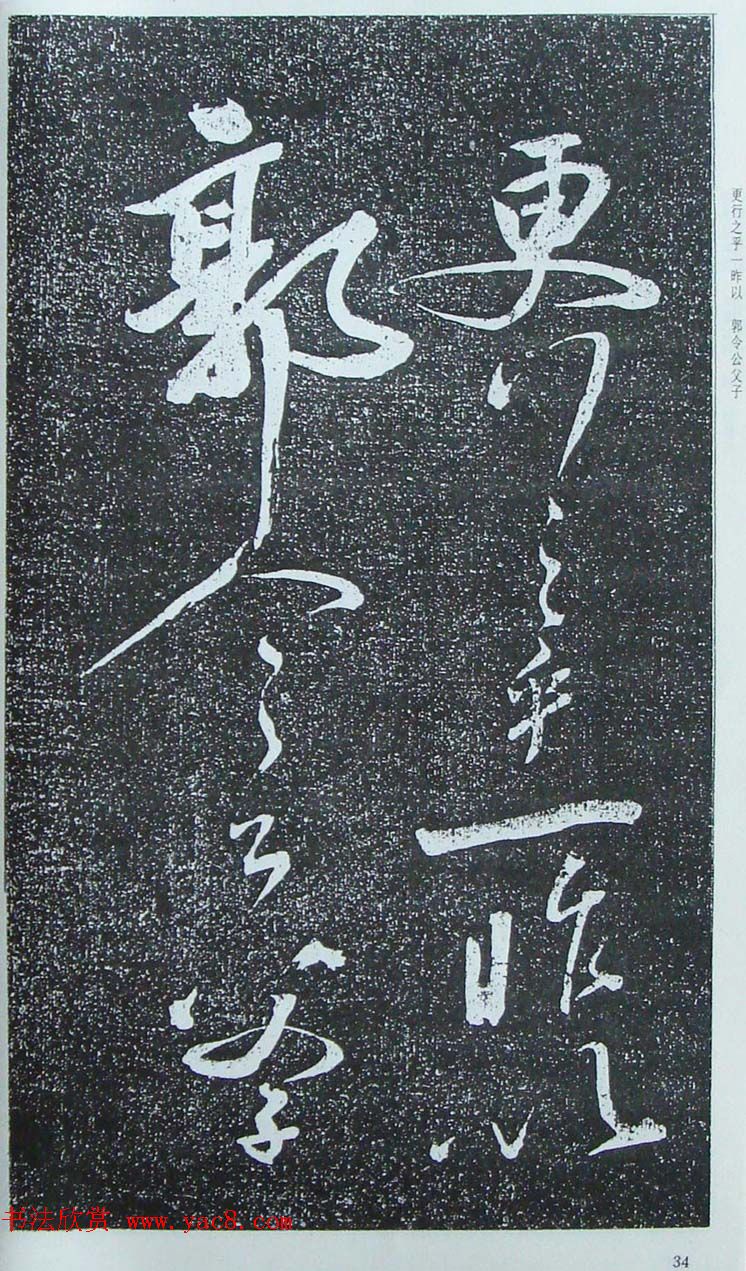 更行之乎一昨以
郭令公父子
更行之乎一昨以 郭令公父子
书法欣赏 www.yac8.com
34